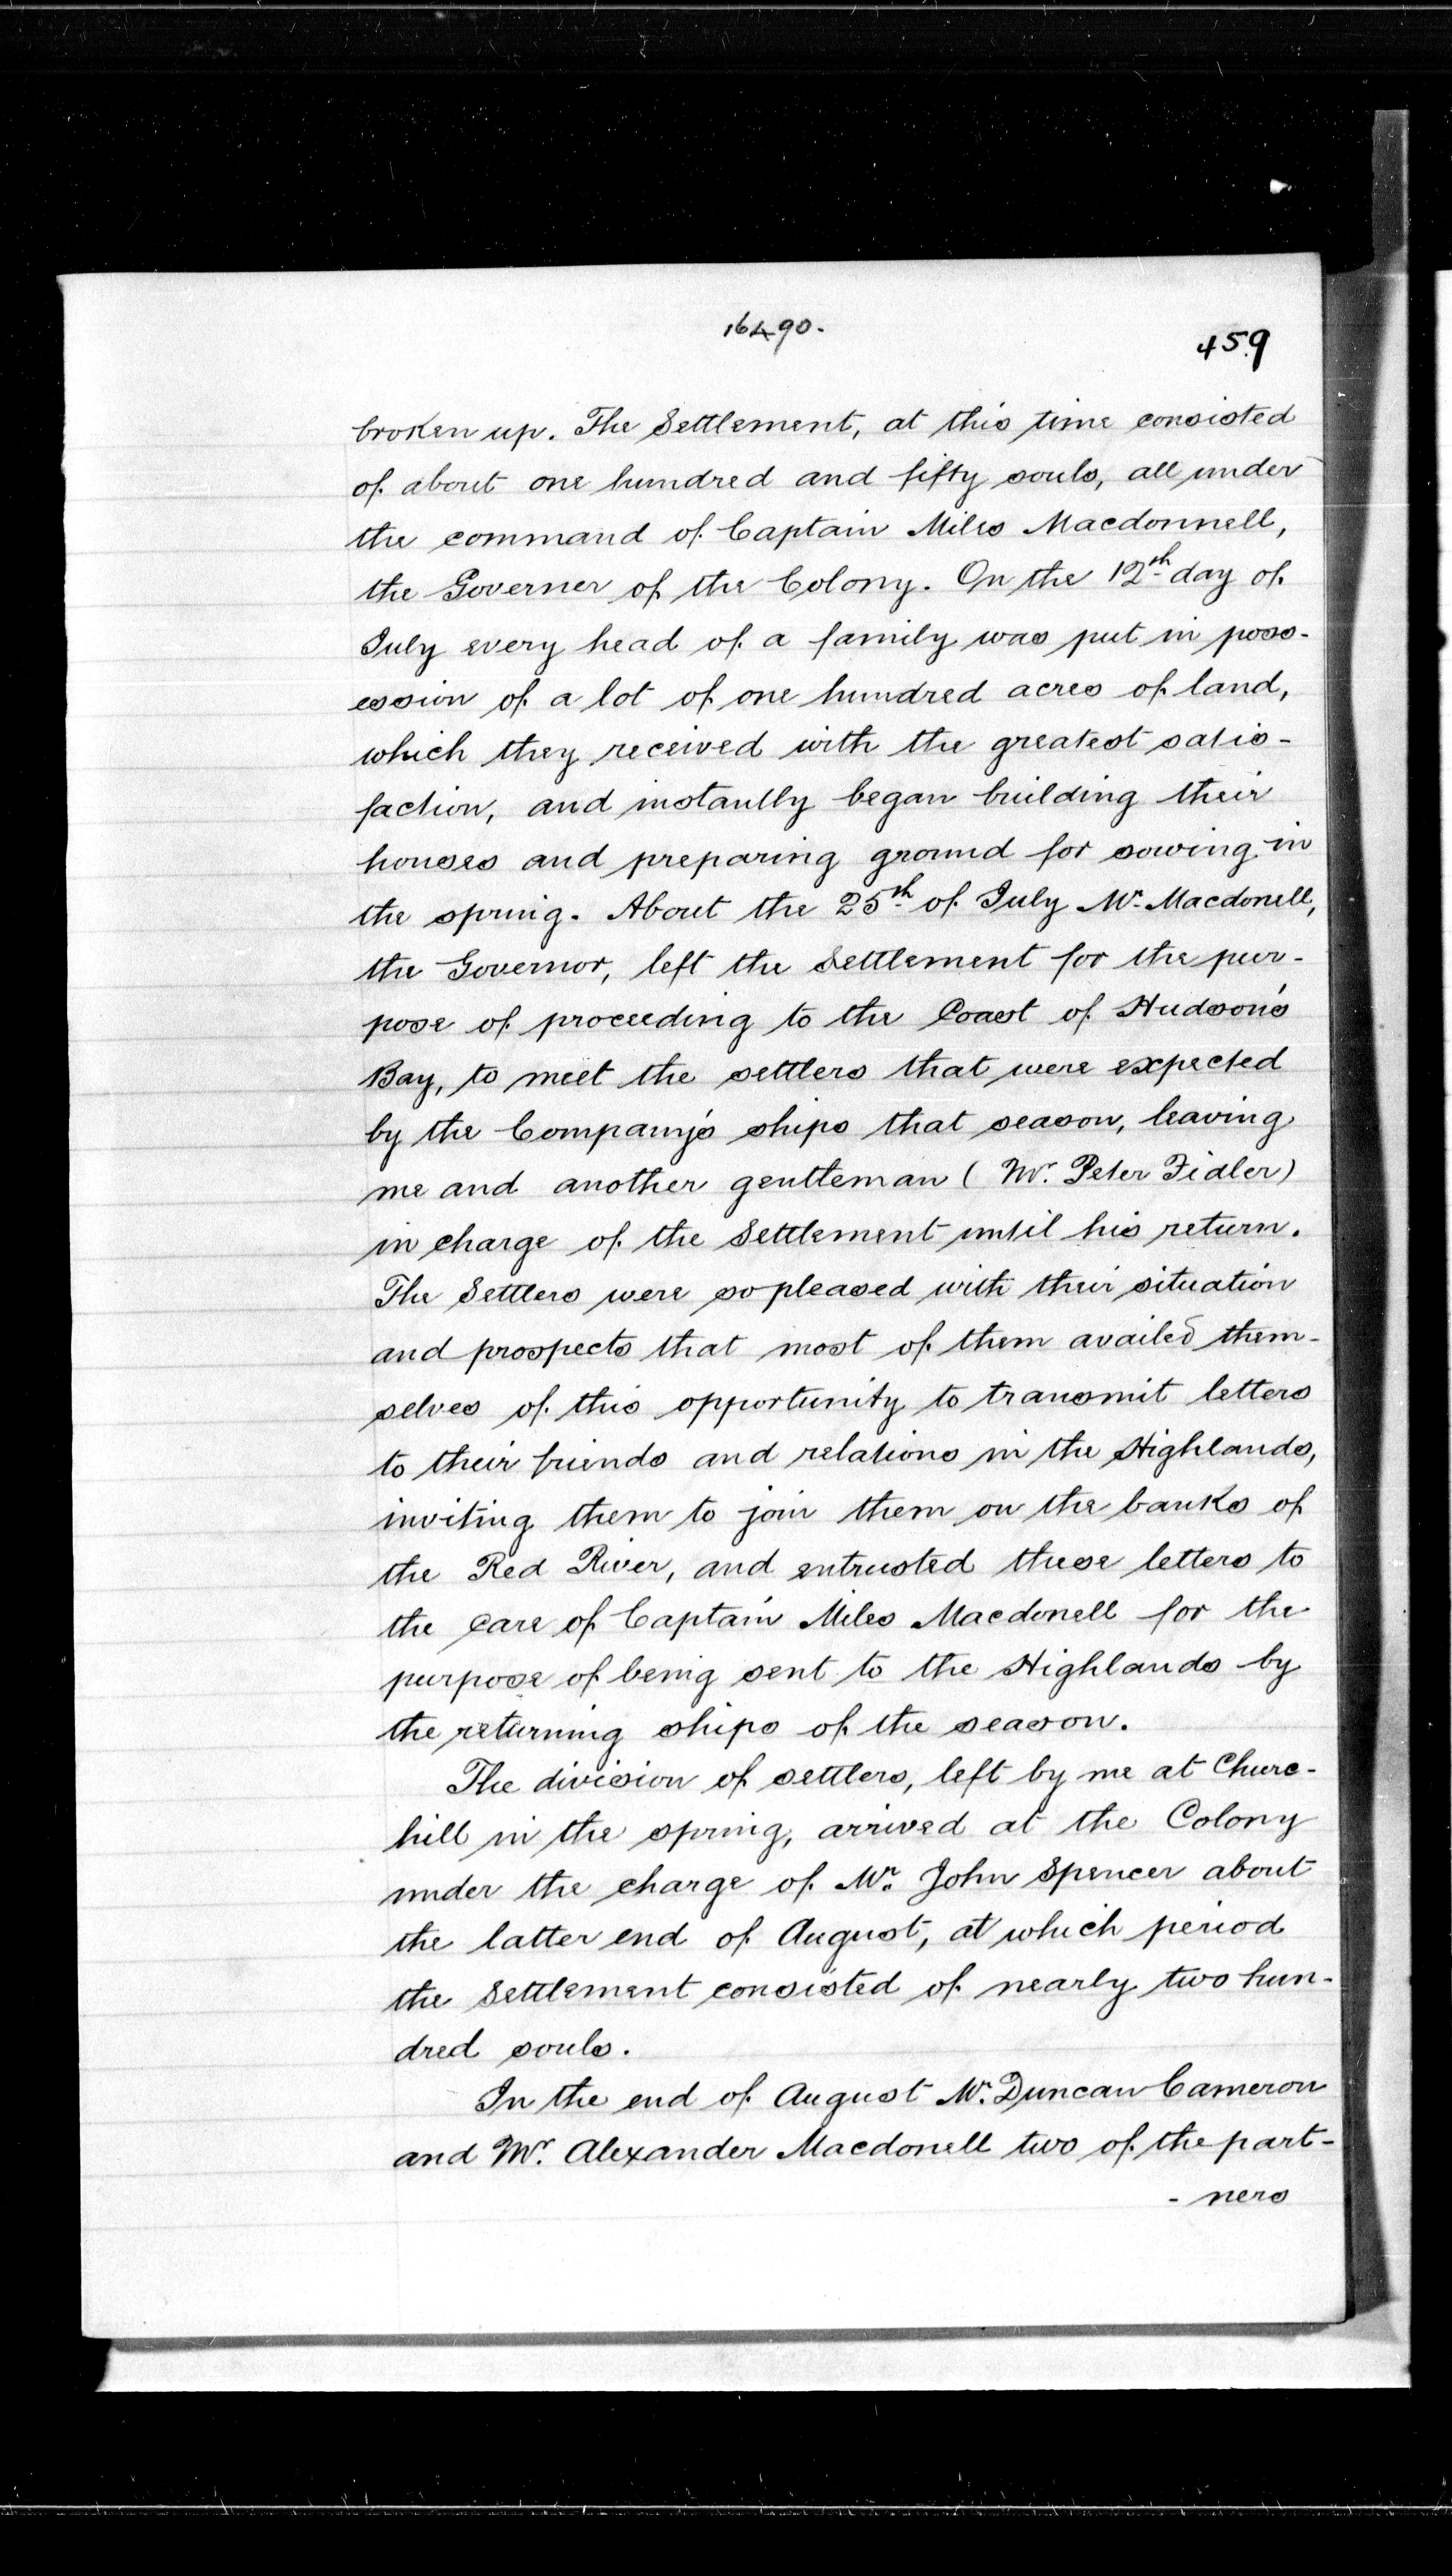 16490.
459
broken up. The Settlement, at this time consisted
of about one hundred and fifty souls, all under
the command of Captain Miles Macdonnell,
the Governer of the Colony. On the 12th day of
July every head of a family was put in poss-
ession of a lot of one hundred acres of land,
which they received with the greatest satis-
faction, and instantly began building their
houses and preparing ground for sowing in
the spring. About the 25th of July Mr. Macdonell,
the Governor, left the Settlement for the pur-
pose of proceeding to the Coast of Hudson's
Bay, to meet the settlers that were expected
by the Company's ships that season, leaving
me and another gentleman (Mr. Peter Fidler)
in charge of the Settlement until his return.
The Settlers were so pleased with their situation
and prospects that most of them availed them-
selves of this opportunity to transmit letters
to their friends and relations in the Highlands,
inviting them to join them on the banks of
the Red River, and entrusted these letters to
the care of Captain Miles Macdonell for the
purpose of being sent to the Highlands by
the returning ships of the season.
The division of settlers, left by me at Churc-
hill in the spring, arrived at the Colony
under the charge of Mr. John Spencer about
the latter end of August, at which period
the Settlement consisted of nearly two hun-
dred souls.
In the end of August Mr. Duncan Cameron
and Mr. Alexander Macdonell two of the part-
- ners